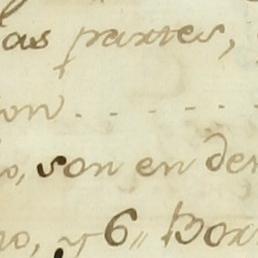 as partes,
on - - - - -
o, son en de
no, y 6,, Bo